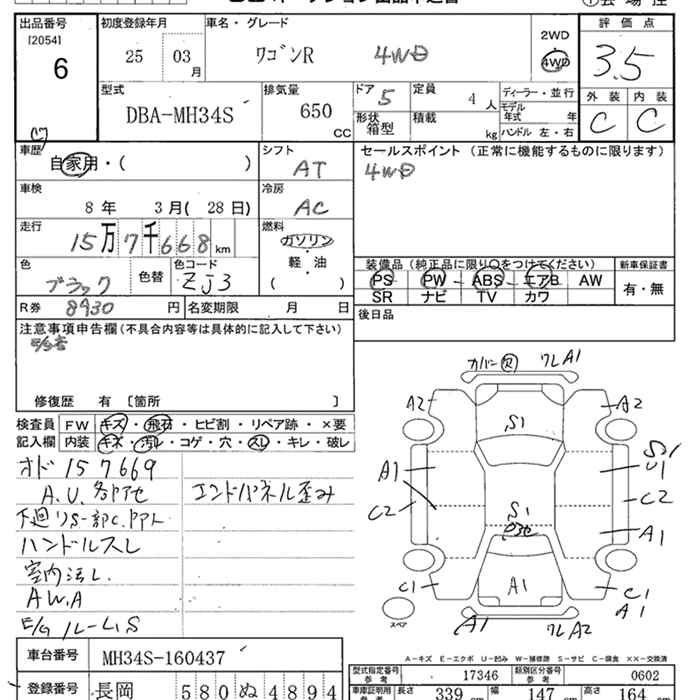 出品番号 初度登録年月 車名・グレード 2WD 評価点
[2054] 25 03 月 ワゴンR 4WD 4WD 3.5
6
型式 排気量 ドア 5 定員 4 人 ディーラー・並行 外装 内装
DBA-MH34S 650 CC 形状 箱型 積載 kg モデル年式 年 C C
ハンドル 左・右
車歴 自家用・( ) シフト AT セールスポイント (正常に機能するものに限ります)
4WD
車検 8 年 3 月 ( 28 日) 冷房 AC
走行 15万7千668 km 燃料 ガソリン
軽・油
( )
色 ブラック 色替 色コード ZJ3
装備品 (純正品に限り○をつけてください) 新車保証書
PS PW ABS エアB AW 有・無
SR ナビ TV カワ
R券 8930 円 名変期限 月 日 後日品
注意事項申告欄 (不具合内容等は具体的に記入して下さい)
修復歴 有 〔箇所 〕
カバー 欠 ワレ A1
検査員 FW キズ・飛石・ヒビ割・リペア跡・×要
記入欄 内装 キズ・汚レ・コゲ・穴・スレ・キレ・破レ
A2 S1 A2
オド 157669
A.U. 各部色 エンドパネル歪み
A1 U1
C2 S1 C2
ハンドルスレ A1
室内汚レ
A.W.A C1 A1 C1 A1
スペア A1 ワレ A2
A-キズ E-エクボ U-凹み W-補修跡 S-サビ C-腐食 XX-交換済
車台番号 MH34S-160437
型式指定番号 参考 17346 類別区分番号 参考 0602
登録番号 長岡 580 ぬ 4894
車庫証明用 参考 長さ 339 cm 幅 147 cm 高さ 164 cm